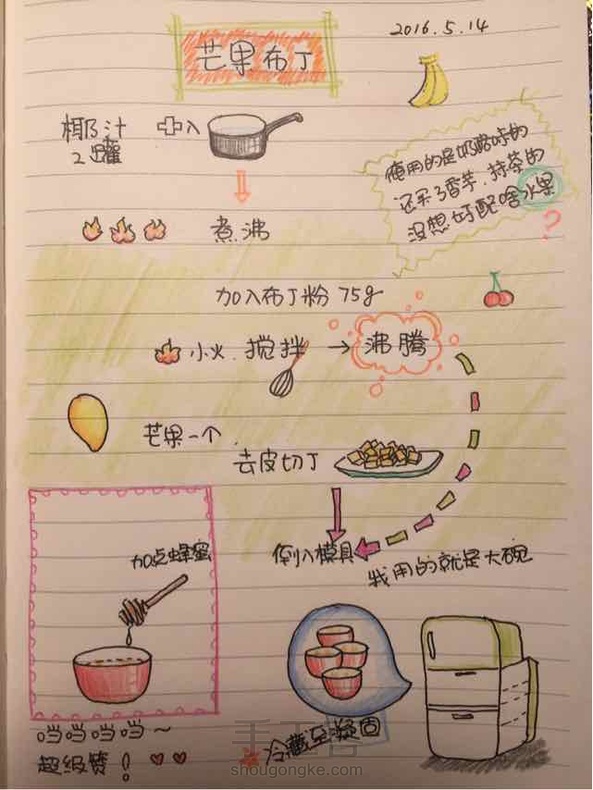 芒果布丁
2016.5.14
椰汁
2罐
加入
使用的是奶酪味的
还买了香芋.抹茶的
没想好配啥水果
?
煮沸
加入布丁粉 75g
小火.搅拌 → 沸腾
芒果一个.
去皮切丁
倒入模具
我用的就是大碗
加点蜂蜜
冷藏至凝固
当当当当~
超级赞!
手工客
shougongke.com